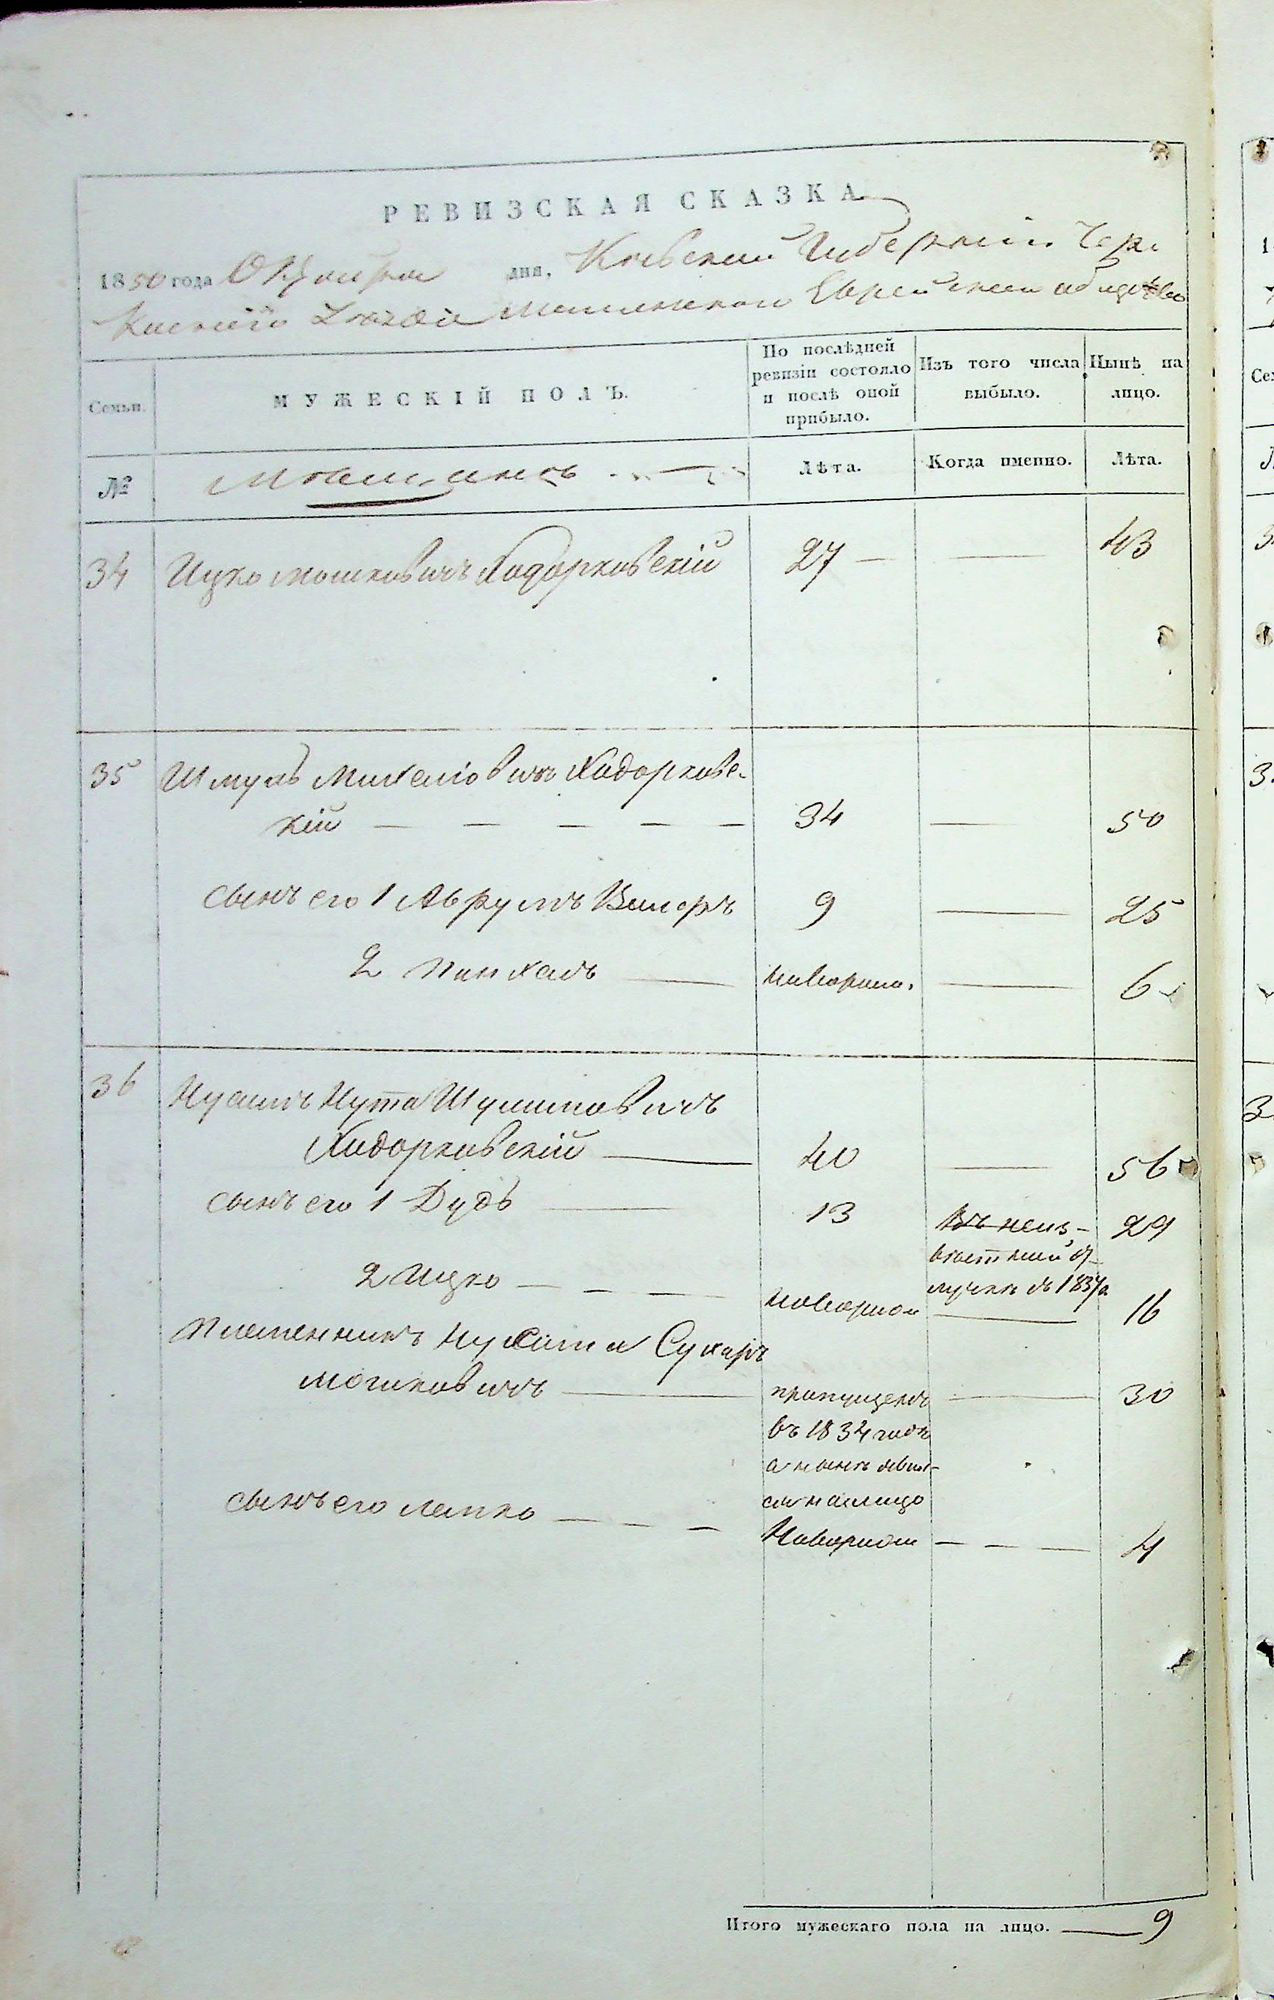 РЕВИЗСКАЯ СКАЗКА
1850 года Октября дня, Кіевской Губерніи Чер-
каскаго Уезда Еврейскаго общества
Семьи.
МУЖЕСКІЙ ПОЛЪ.
По послѣдней ревизіи состояло и послѣ оной прибыло.
Изъ того числа выбыло.
Нынѣ на лицо.
№
Мѣщанъ
Лѣта.
Когда именно.
Лѣта.
34 Ицко Мошковичъ Ходорковскій 27 — — 43
35 Шмуль Михелiовичъ Ходорковс-
кій — — — — — 34 — 50
сынъ его 1 Аврумъ Векторъ 9 — 25
2 Пинхасъ — новорожд. — 6
36 Нута Шулимовичъ
Ходорковскій — 40 — 56
сынъ его 1 Дудь — 13 въ неиз- 29
вѣстной от-
лучкѣ съ 1837 г.
2 Ицко — — — новорожд — 16
Племенникъ Нухима Сухаръ
Мошковичъ — пропущенъ — 30
въ 1834 годѣ
а нынѣ явил-
ся на лицо
сынъ его Лейко — — — Новорожд — — — 4
Итого мужескаго пола на лицо. — 9